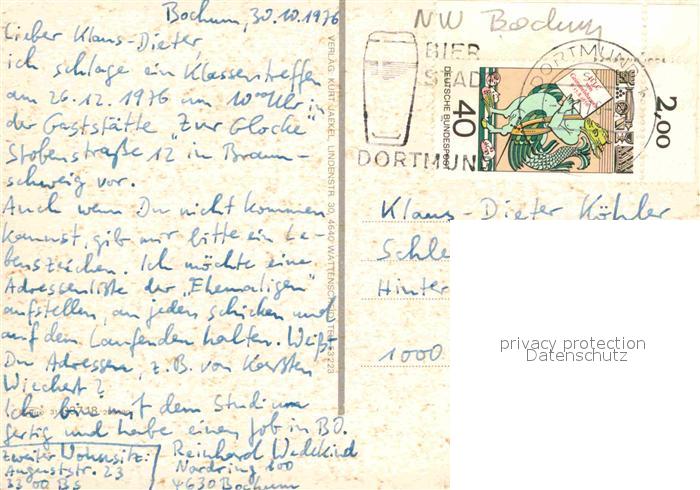 Bochum, 30.10.1976
Lieber Klaus-Dieter,
ich schlage ein Klassentreffen
am 26.12.1976 um 10⁰⁰ Uhr in
der Gaststätte "Zur Glocke"
Stobenstraße 12 in Braun-
schweig vor.
Auch wenn Du nicht kommen
kannst, gib mir bitte ein Le-
benszeichen. Ich möchte eine
Adressenliste der "Ehemaligen"
aufstellen, an jeden schicken und
auf dem Laufenden halten. Weißt
Du Adressen, z.B. von Karsten
Wiechert?
Ich bin mit dem Studium
fertig und habe einen Job in BO.
zweiter Wohnsitz:
Auguststr. 23
3300 BS
Reinhard Wedekind
Nordring 100
4630 Bochum
VERLAG KURT JAEKEL, LINDENSTR. 30, 4640 WATTENSCHEID
NW Bochum
BIER
STADT
DORTMUND
DORTMUND
DEUTSCHE BUNDESPOST
40
2,00
Klaus-Dieter Köhler
Schle
Hinter
1000
privacy protection
Datenschutz